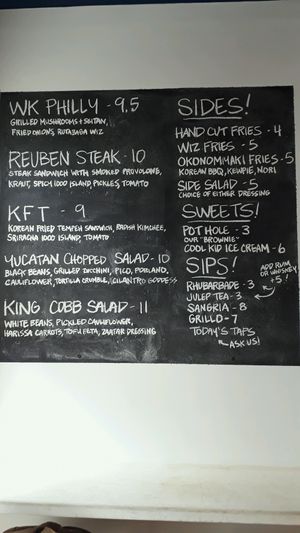 WK PHILLY - 9.5
GRILLED MUSHROOMS + SEITAN,
FRIED ONIONS, RUTABAGA WIZ
REUBEN STEAK - 10
STEAK SANDWICH WITH SMOKED PROVOLONE,
KRAUT, SPICY 1000 ISLAND, PICKLES, TOMATO
KFT - 9
KOREAN FRIED TEMPEH SANDWICH, RADISH KIMCHEE,
SRIRACHA 1000 ISLAND, TOMATO
YUCATAN CHOPPED SALAD - 10
BLACK BEANS, GRILLED ZUCCHINI, PICO, POBLANO,
CAULIFLOWER, TORTILLA CRUMBLE, CILANTRO GODDESS
KING COBB SALAD - 11
WHITE BEANS, PICKLED CAULIFLOWER,
HARISSA CARROTS, TOFU FETA, ZAATAR DRESSING
SIDES!
HAND CUT FRIES - 4
WIZ FRIES - 5
OKONOMIYAKI FRIES - 5
KOREAN BBQ, KEWPIE, NORI
SIDE SALAD - 5
CHOICE OF EITHER DRESSING
SWEETS!
POT HOLE - 3
OUR "BROWNIE"
COOL KID ICE CREAM - 6
SIPS!
RHUBARBADE - 3
JULEP TEA - 3
ADD RUM
OR WHISKEY
+5!
SANGRIA - 8
GRILLO - 7
TODAY'S TAPS
ASK US!